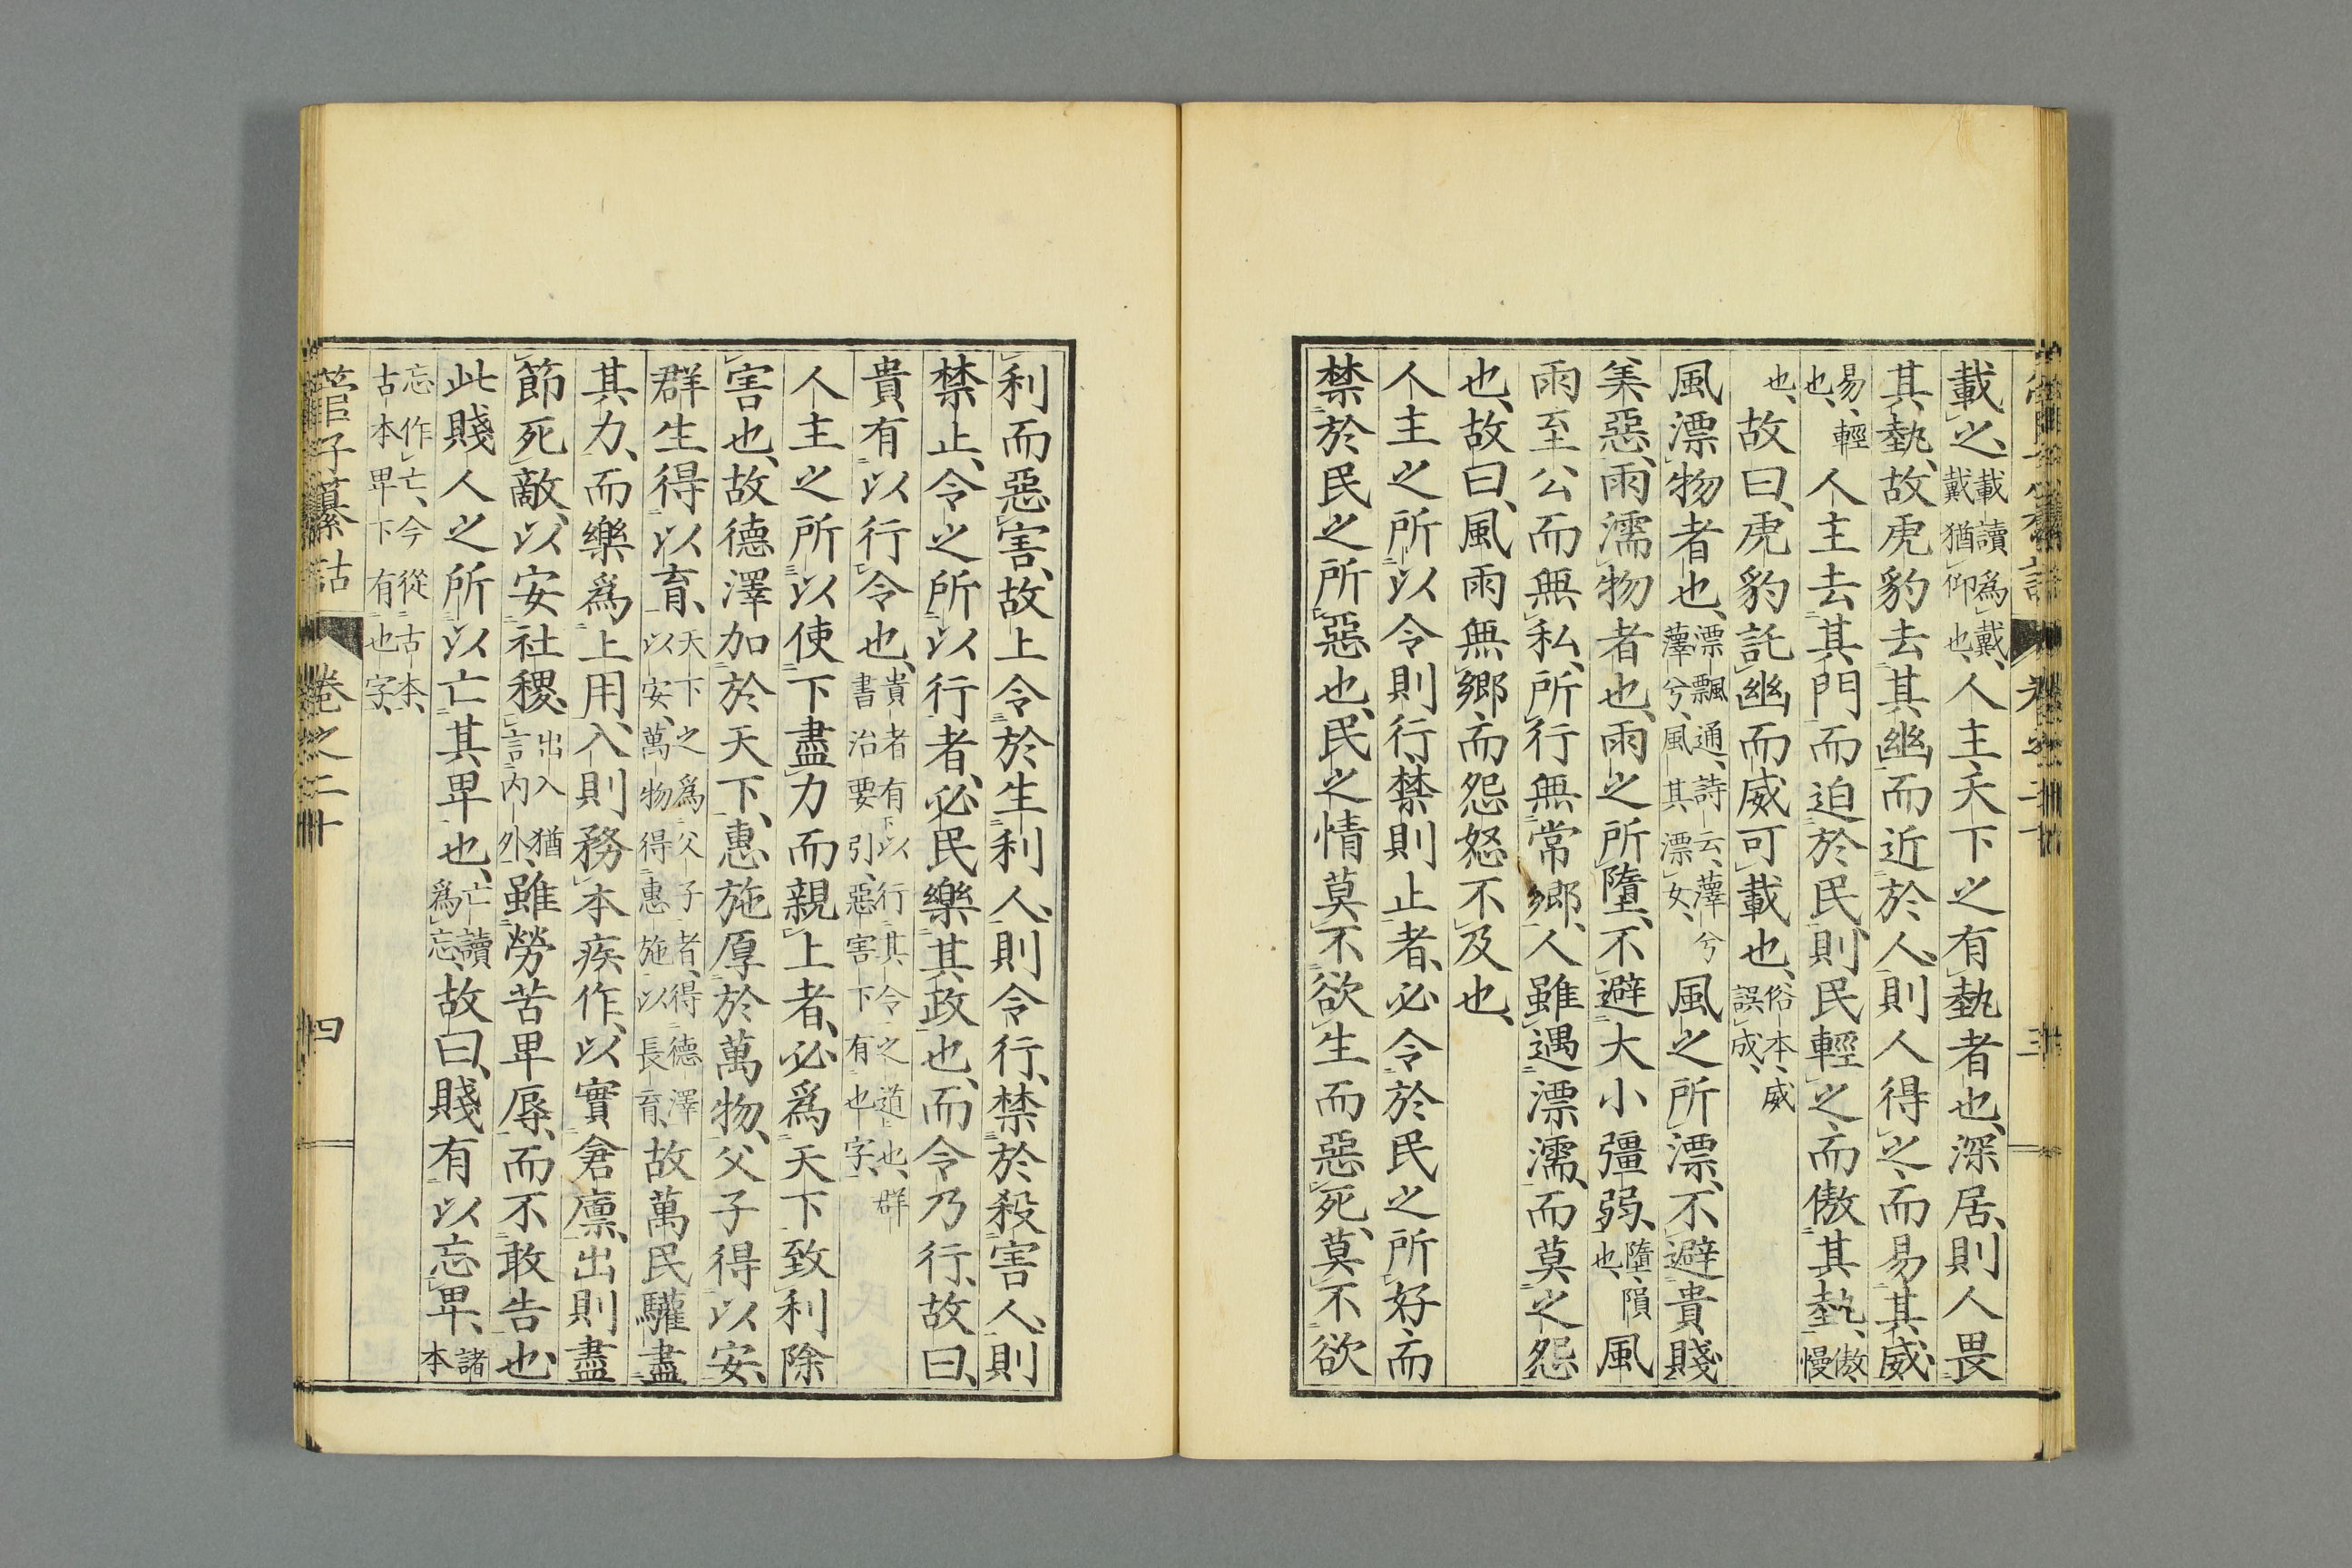 載之、載讀爲戴、戴猶仰也、人主天下之有埶者也、深居、則人畏
其埶、故虎豹去其幽而近於人、則人得之而易其威、
易、輕也、人主去其門而迫於民、則民輕之而傲其埶、傲、慢
也、故曰、虎豹託幽而威可載也、俗本、威誤成、
風漂物者也、漂飄通、詩云、蘀兮蘀兮、風其漂女、風之所漂、不避貴賤
美惡、雨濡物者也、雨之所墮、不避大小彊弱、墮、隕也、風
雨至公而無私、所行無常鄉、人雖遇漂濡、而莫之怨
也、故曰、風雨無鄉、而怨怒不及也、
人主之所以令則行、禁則止者、必令於民之所好、而
禁於民之所惡也、民之情莫不欲生而惡死、莫不欲
利而惡害、故上令於生利人、則令行、禁於殺害人、則
禁止、令之所以行者、必民樂其政也、而令乃行、故曰、
貴有以行令也、貴者有下以行其令之道也、群書治要引、惡害下有也字、
人主之所以使下盡力而親上者、必爲天下致利除
害也、故德澤加於天下、惠施厚於萬物、父子得以安、
群生得以育、天下之爲父子者、得德澤以安、萬物得惠施以長育、故萬民驩盡
其力、而樂爲上用、入則務本疾作、以實倉廩、出則盡
節死敵、以安社稷、出入猶言內外、雖勞苦卑辱、而不敢告也、
此賤人之所以亡其卑也、亡讀爲忘、故曰、賤有以忘卑、諸本
忘作亡、今從古本、古本卑下有也字、
管子纂詁 卷之二十 四